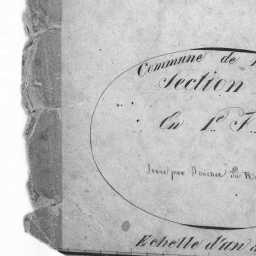 Commune de
Section
En 1.e F
Levé par
Echelle d'un à